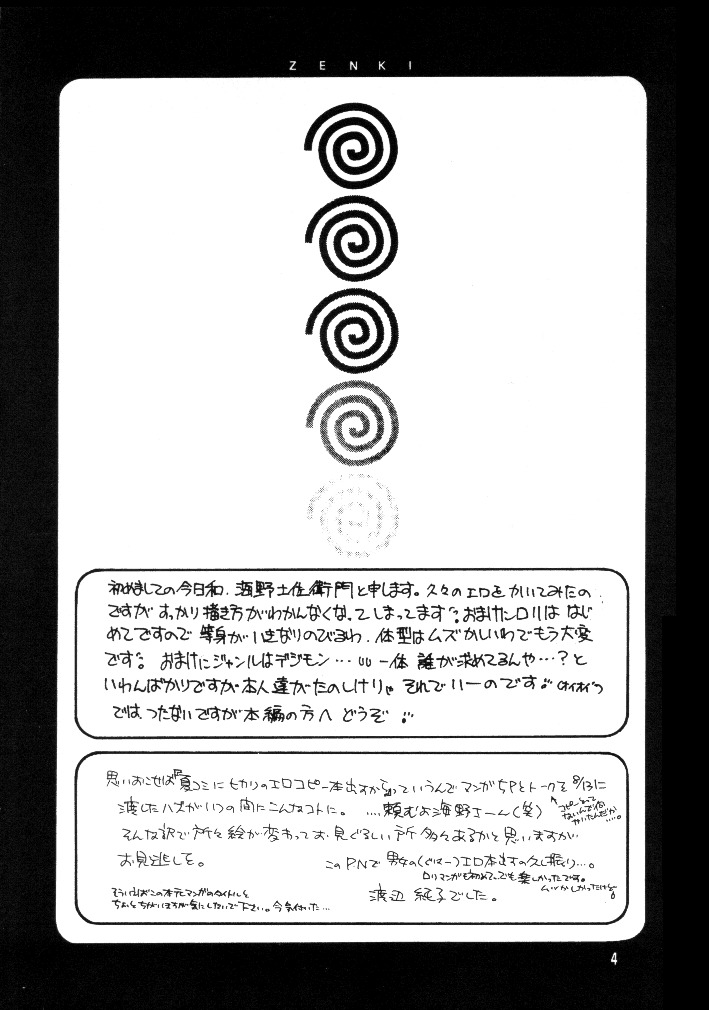 ZENKI
初めましての今日和、海野土佐衛門と申します。久々のエロをかいてみたの
ですが すっかり描き方がわかんなくなってしまってます。おまけにロリは はじ
めてですので 等身がいきなりのびるわ、体型はムズかしいわでもう大変
です。 おまけにジャンルはデジモン… 一体 誰が求めてるんや…?と
いわんばかりですが本人達がたのしけりゃ それでいーのです オイオイ
では、つたないですが本編の方へ どうぞ
思いおこせば『夏コミにヒカリのエロコピー本出すから』っていうんでマンガ5Pとトークを 8/13に
渡したハズがいつの間にこんなコトに。 ....頼むよ海野さーん(笑)
コピーって
ないんで何
やいたんだか
そんな訳で所々絵が変わってお見ぐるしい所多々あるかと思いますが
お見逃しを。 このPNで男女の エロ本出すの久し振り…。
ロリマンガも初めてでも楽しかったです。
ムツかしかったけど
渡辺 純子でした。
そういえばこの本テとマンガのタイトルを
ちょっとちがいますが気にしないで下さい。今気付いた…
4